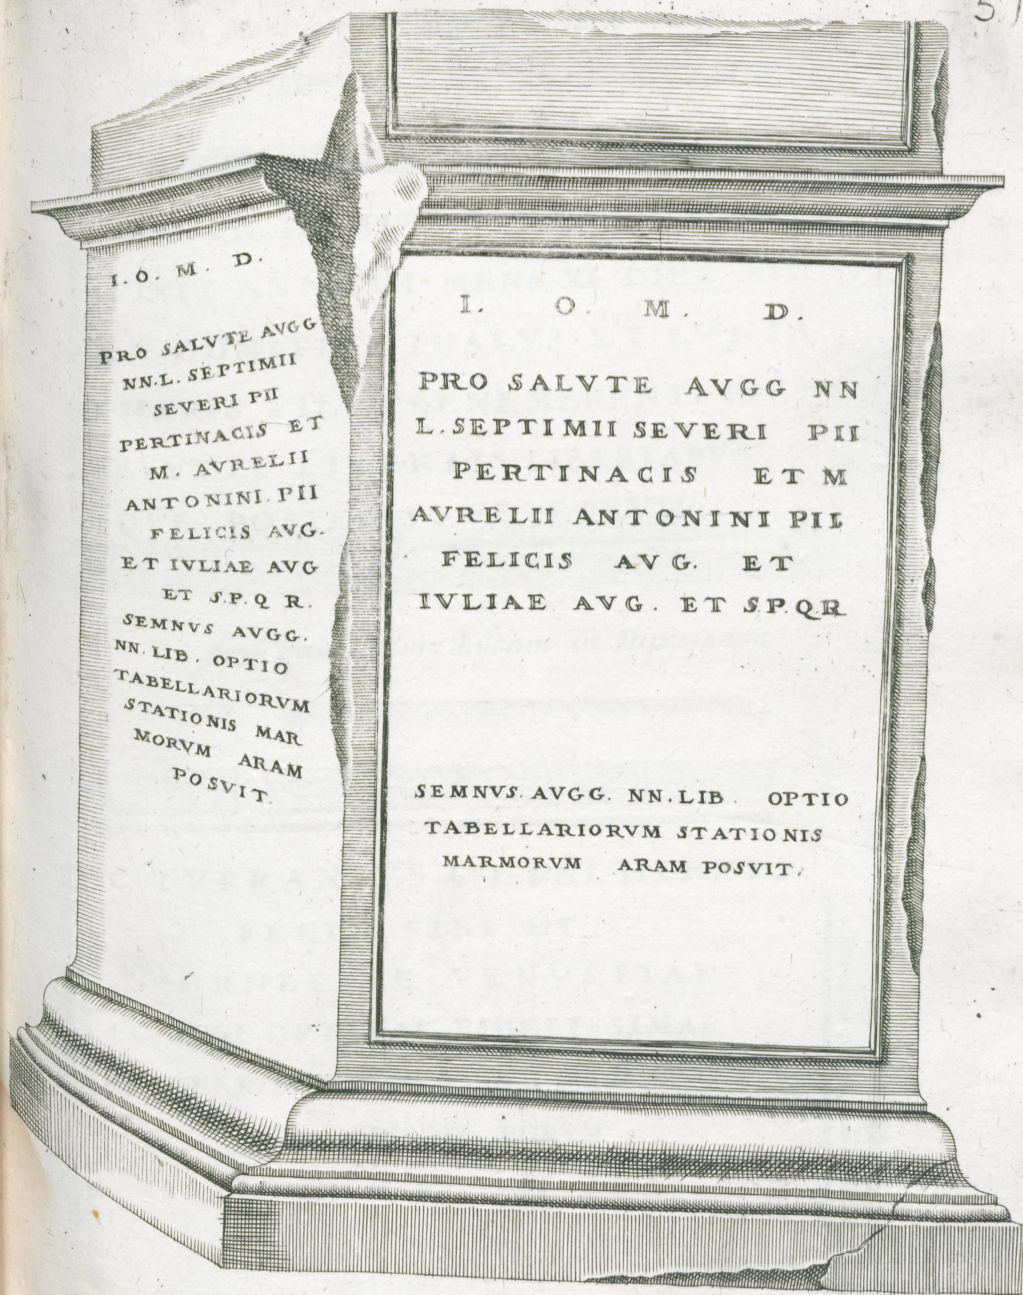 I. O. M. D.
PRO SALVTE AVGG
NN.L. SEPTIMII
SEVERI PII
PERTINACIS ET
M. AVRELII
ANTONINI. PII
FELICIS AVG.
ET IVLIAE AVG
ET S.P.Q R.
SEMNVS AVGG.
NN. LIB. OPTIO
TABELLARIORVM
STATIONIS MAR
MORVM ARAM
POSVIT.
I. O. M. D.
PRO SALVTE AVGG NN
L. SEPTIMII SEVERI PII
PERTINACIS ET M
AVRELII ANTONINI PII
FELICIS AVG. ET
IVLIAE AVG. ET S.P.QR
SEMNVS. AVGG. NN. LIB. OPTIO
TABELLARIORVM STATIONIS
MARMORVM ARAM POSVIT.